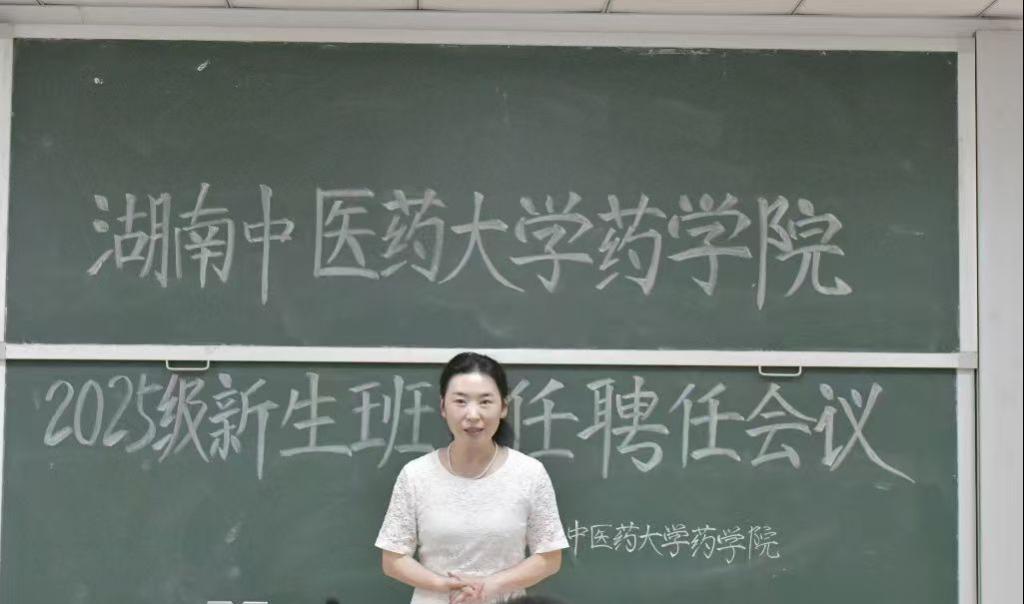 湖南中医药大学药学院
2025级新生班 任聘任会议
中医药大学药学院